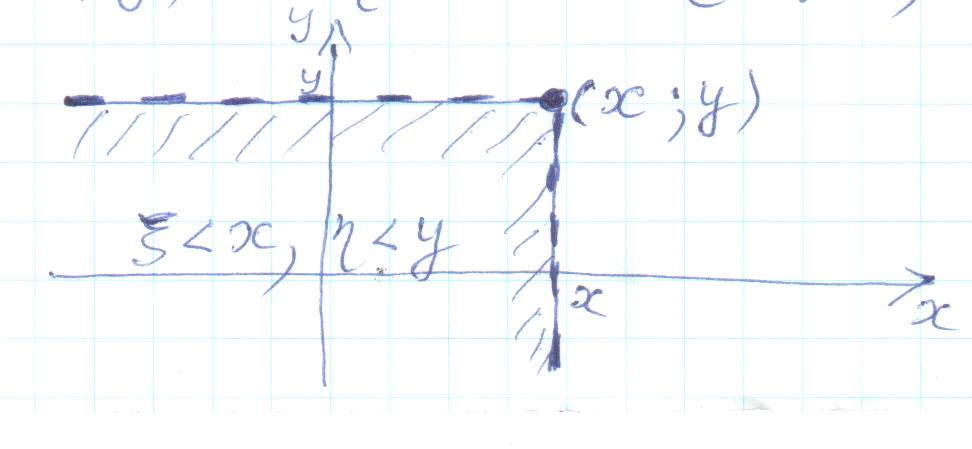 y
y
(x ; y)
ξ < x, η < y
x
x